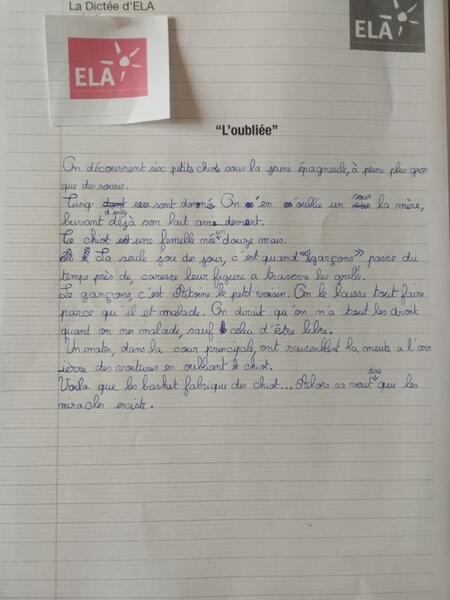 La Dictée d'ELA
ELA
ELA
"L'oubliée"
On découvrent six petits chiots sous la jeune épagneule, à peine plus gros
que des souris.
sont donnés On en oublie un sous la mère,
buvant déjà son lait
Ce chiot est une femelle né douze mais.
La seule joie des jour, c'est quand "garçons" passe du
temps près de, caresse leur figure a travers les grille.
Le garçons, c'est Antoine le petit voisin. On le laisse tout faire
parce qu'il et malade. On dirait qu'on n'a tout les droit
quand on nes malade, sauf celui d'être libre.
Un matin, dans la cour principale, ont rassemblent la meute a l'arr
ière des voitures en oubliant le chiot.
dire
Voila que les basket fabrique des chiot... Alors sa veut que les
miracles existe.